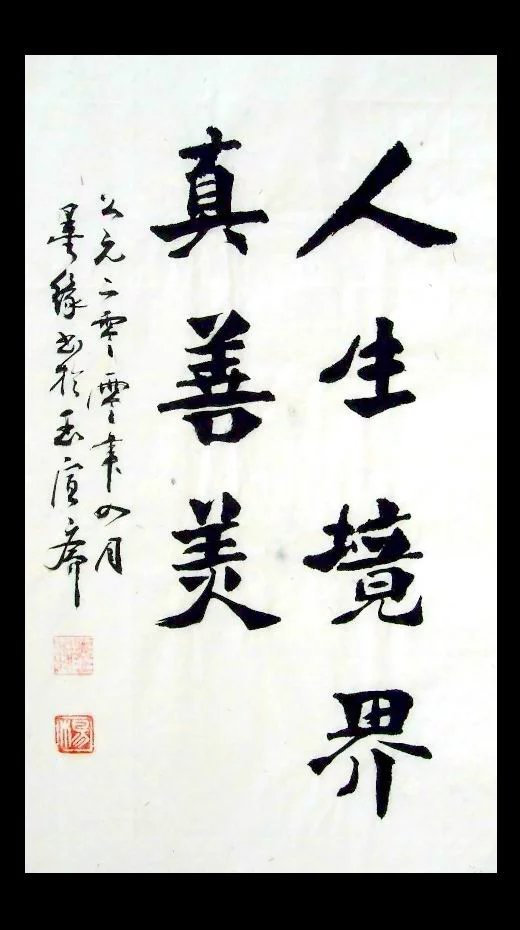 人生境界
真善美
公元二零零年四月
墨缘书於玉宜斋
楊